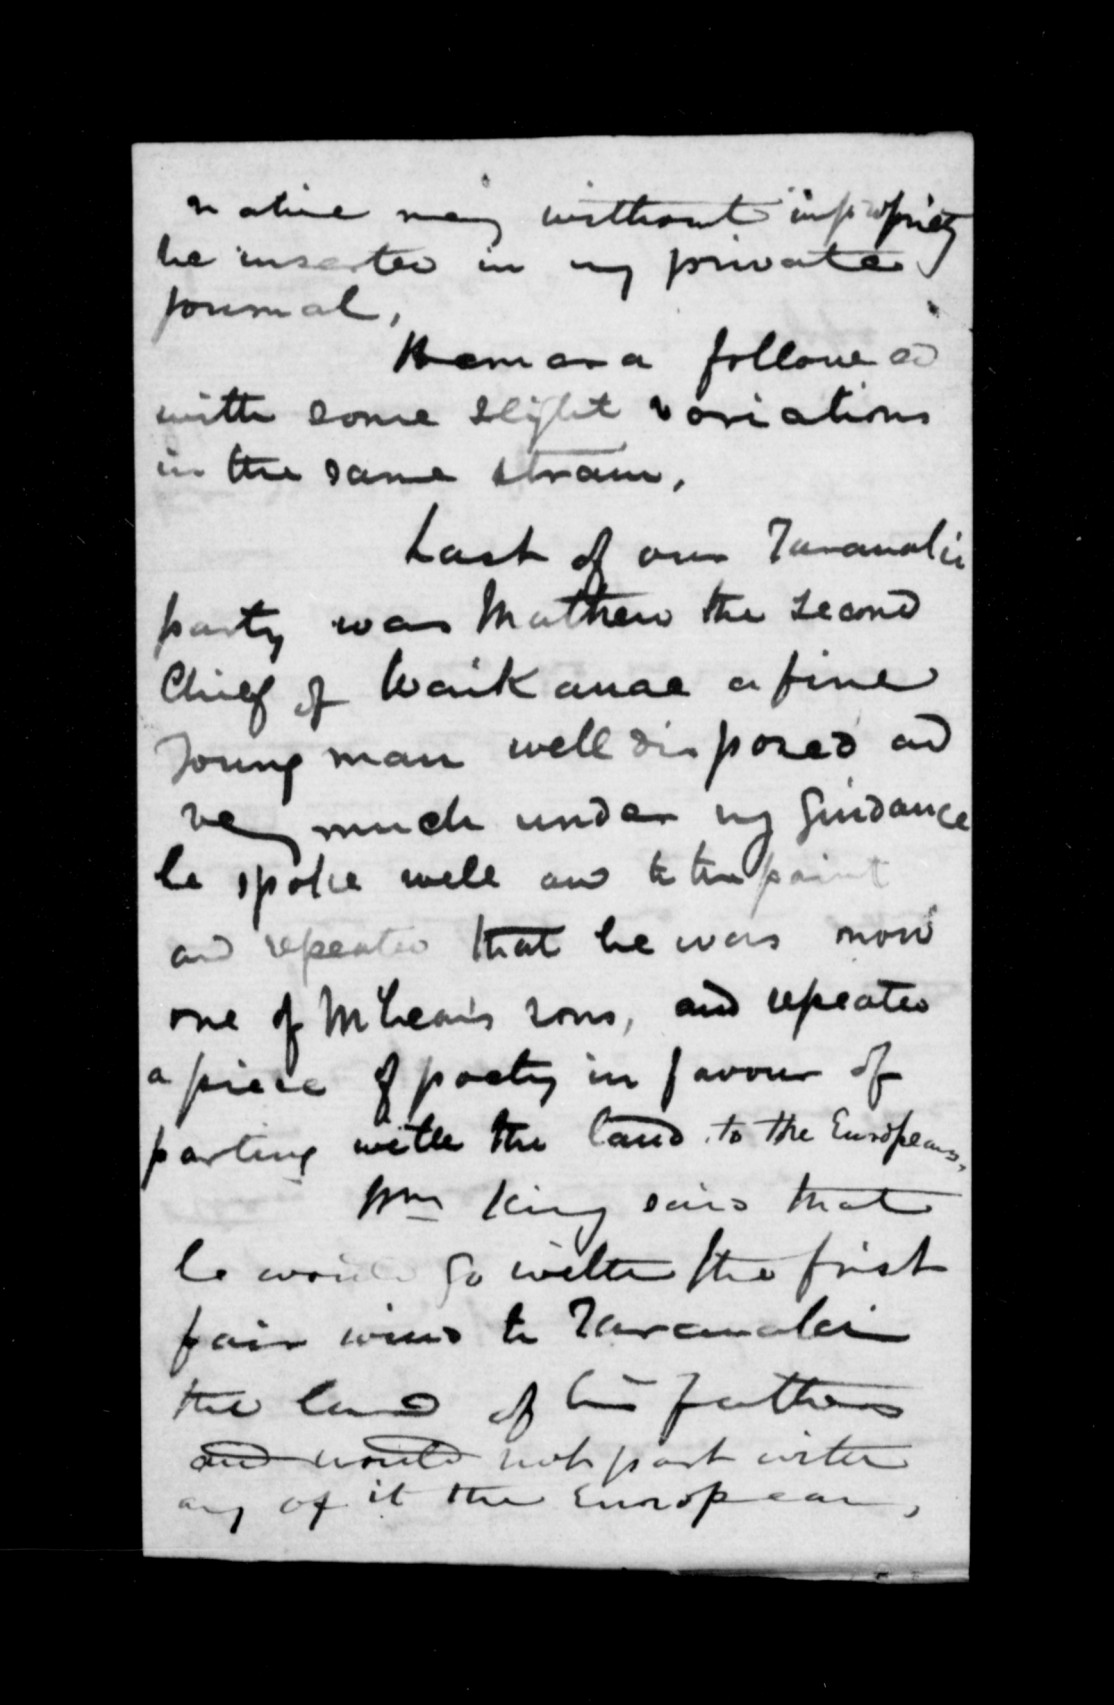 native may without impropriety
be inserted in my private
journal,
followed
with some slight variations
in the same strain,
Last of our Taranaki
party was Mathew the second
Chief of Waikanae a fine
young man well disposed and
very much under my guidance
he spoke well and to the point
and repeated that he was now
one of McLean's sons, and repeated
a piece of poetry in favour of
parting with the land to the Europeans,
Wm King said that
he would go with the first
fair wind to Taranaki
the land of his fathers
and would not part with
any of it the European,